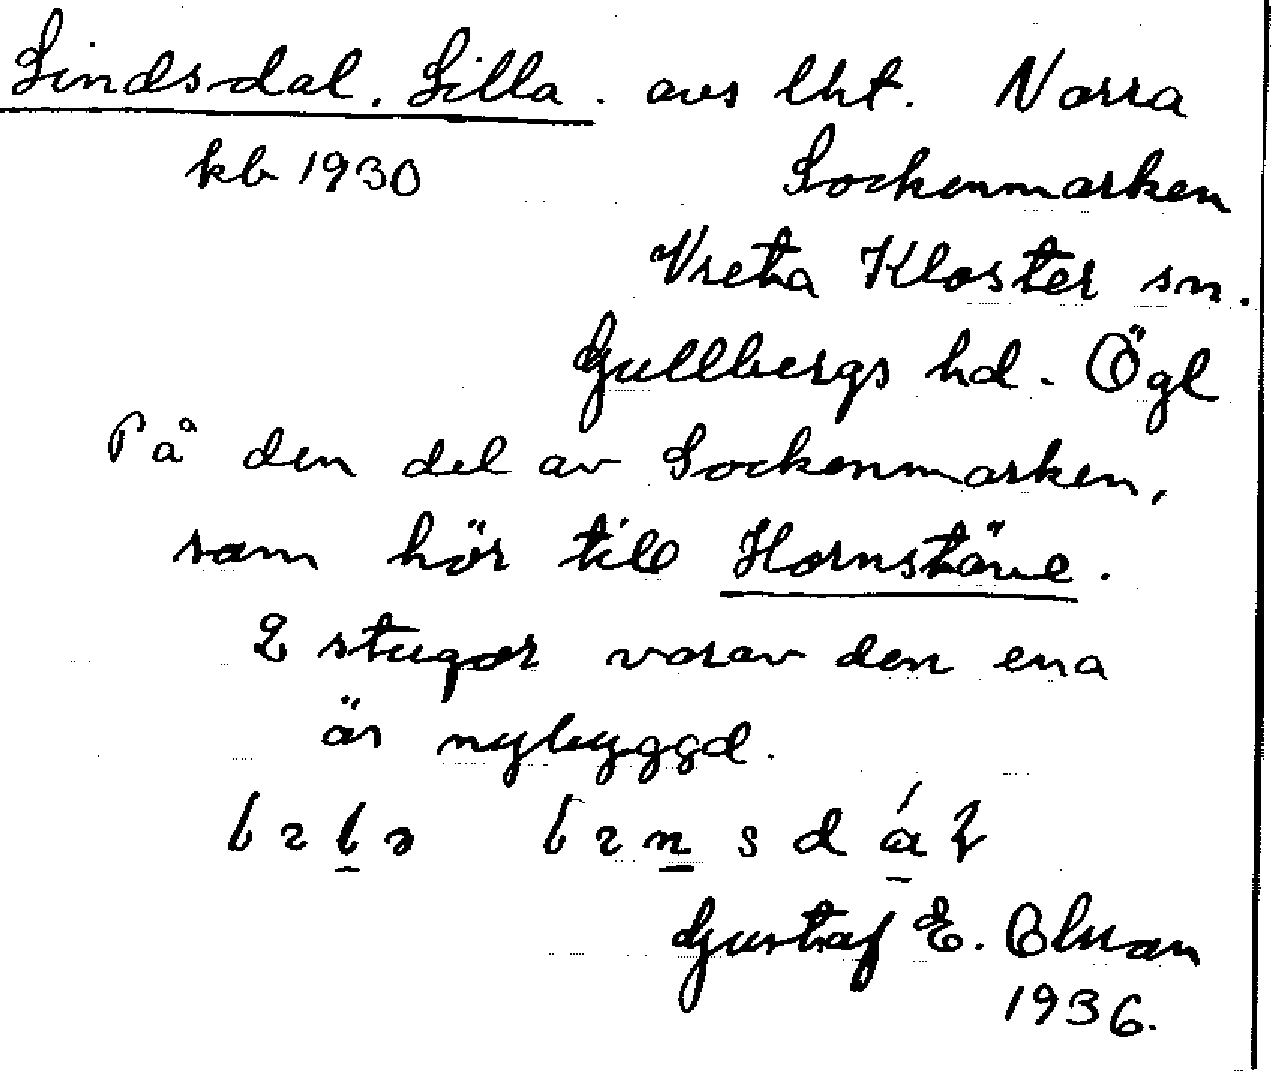 Lindsdal. Lilla. avs lht. Norra
kb 1930 Sockenmarken
Vreta Kloster sn.
Gullbergs hd. Ögl
På den del av Sockenmarken,
som hör till Hornstäve.
2 stugor varav den ena
är nybyggd.
Gustaf E. Olson
1936.